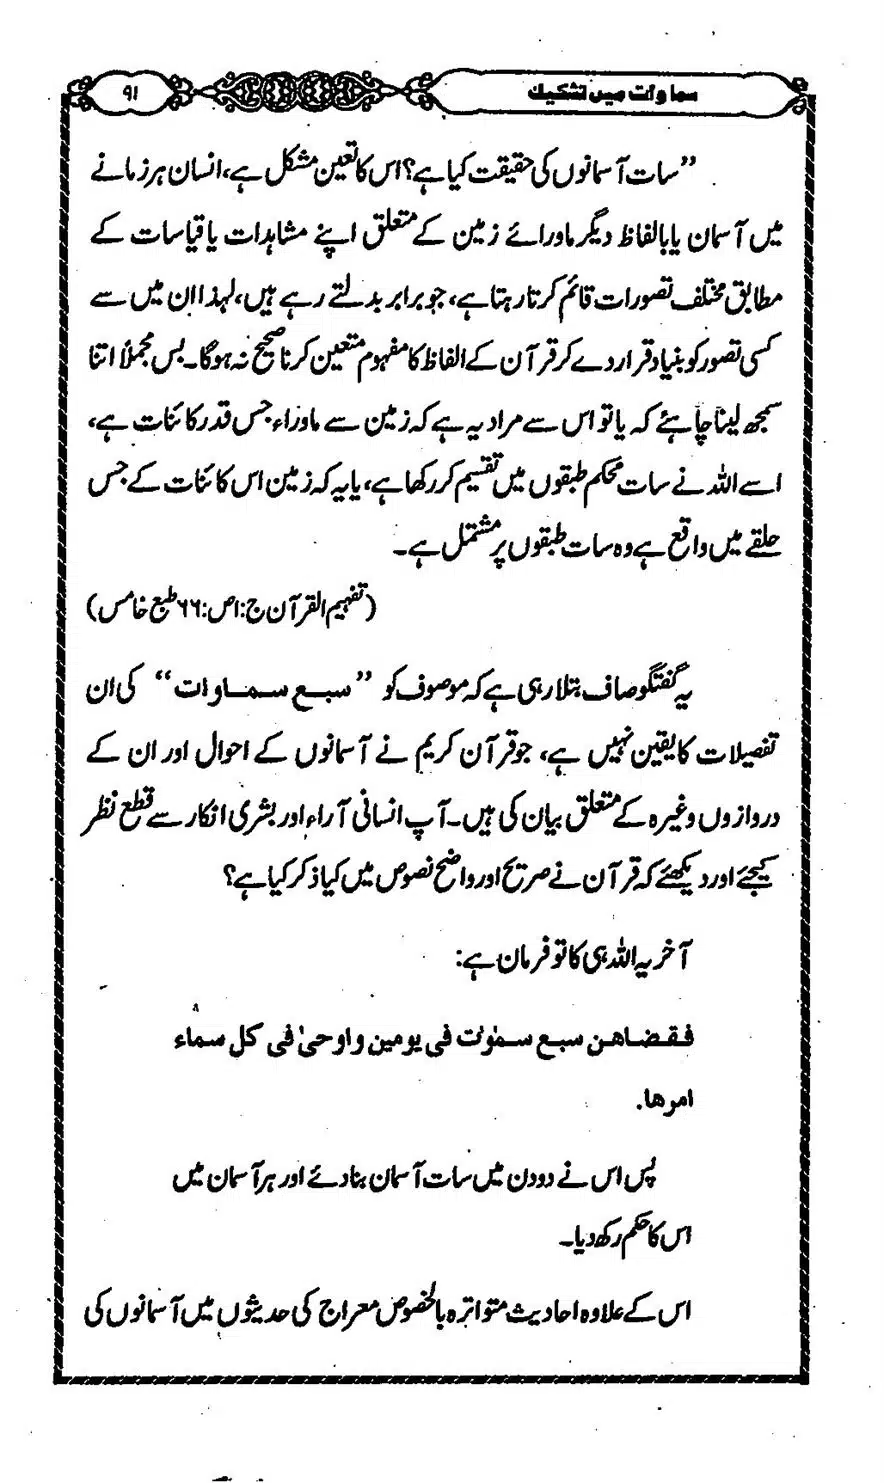 سماوات میں تشکیك
۹۱
”سات آسمانوں کی حقیقت کیا ہے؟ اس کا تعین مشکل ہے، انسان ہر زمانے
میں آسمان یا بالفاظ دیگر ماورائے زمین کے متعلق اپنے مشاہدات یا قیاسات کے
مطابق مختلف تصورات قائم کرتا رہتا ہے، جو برابر بدلتے رہے ہیں، لہذا ان میں سے
کسی تصور کو بنیاد قرار دے کر قرآن کے الفاظ کا مفہوم متعین کرنا صحیح نہ ہوگا۔ بس مجملاً اتنا
سمجھ لینا چاہئے کہ یا تو اس سے مراد یہ ہے کہ زمین سے ماوراء جس قدر کائنات ہے،
اسے اللہ نے سات محکم طبقوں میں تقسیم کر رکھا ہے، یا یہ کہ زمین اس کائنات کے جس
حلقے میں واقع ہے وہ سات طبقوں پر مشتمل ہے۔
(تفہیم القرآن ج:۱ص:۶۶ طبع خامس)
یہ گفتگو صاف بتلا رہی ہے کہ موصوف کو ”سبع سماوات“ کی ان
تفصیلات کا یقین نہیں ہے، جو قرآن کریم نے آسمانوں کے احوال اور ان کے
دروازوں وغیرہ کے متعلق بیان کی ہیں۔ آپ انسانی آراء اور بشری افکار سے قطع نظر
کیجئے اور دیکھئے کہ قرآن نے صریح اور واضح نصوص میں کیا ذکر کیا ہے؟
آخر یہ اللہ ہی کا تو فرمان ہے:
فقضاهن سبع سمٰوٰت فی یومین و اوحیٰ فی کل سماء
امرها.
پس اس نے دو دن میں سات آسمان بنا دئے اور ہر آسمان میں
اس کا حکم رکھ دیا۔
اس کے علاوہ احادیث متواترہ بالخصوص معراج کی حدیثوں میں آسمانوں کی